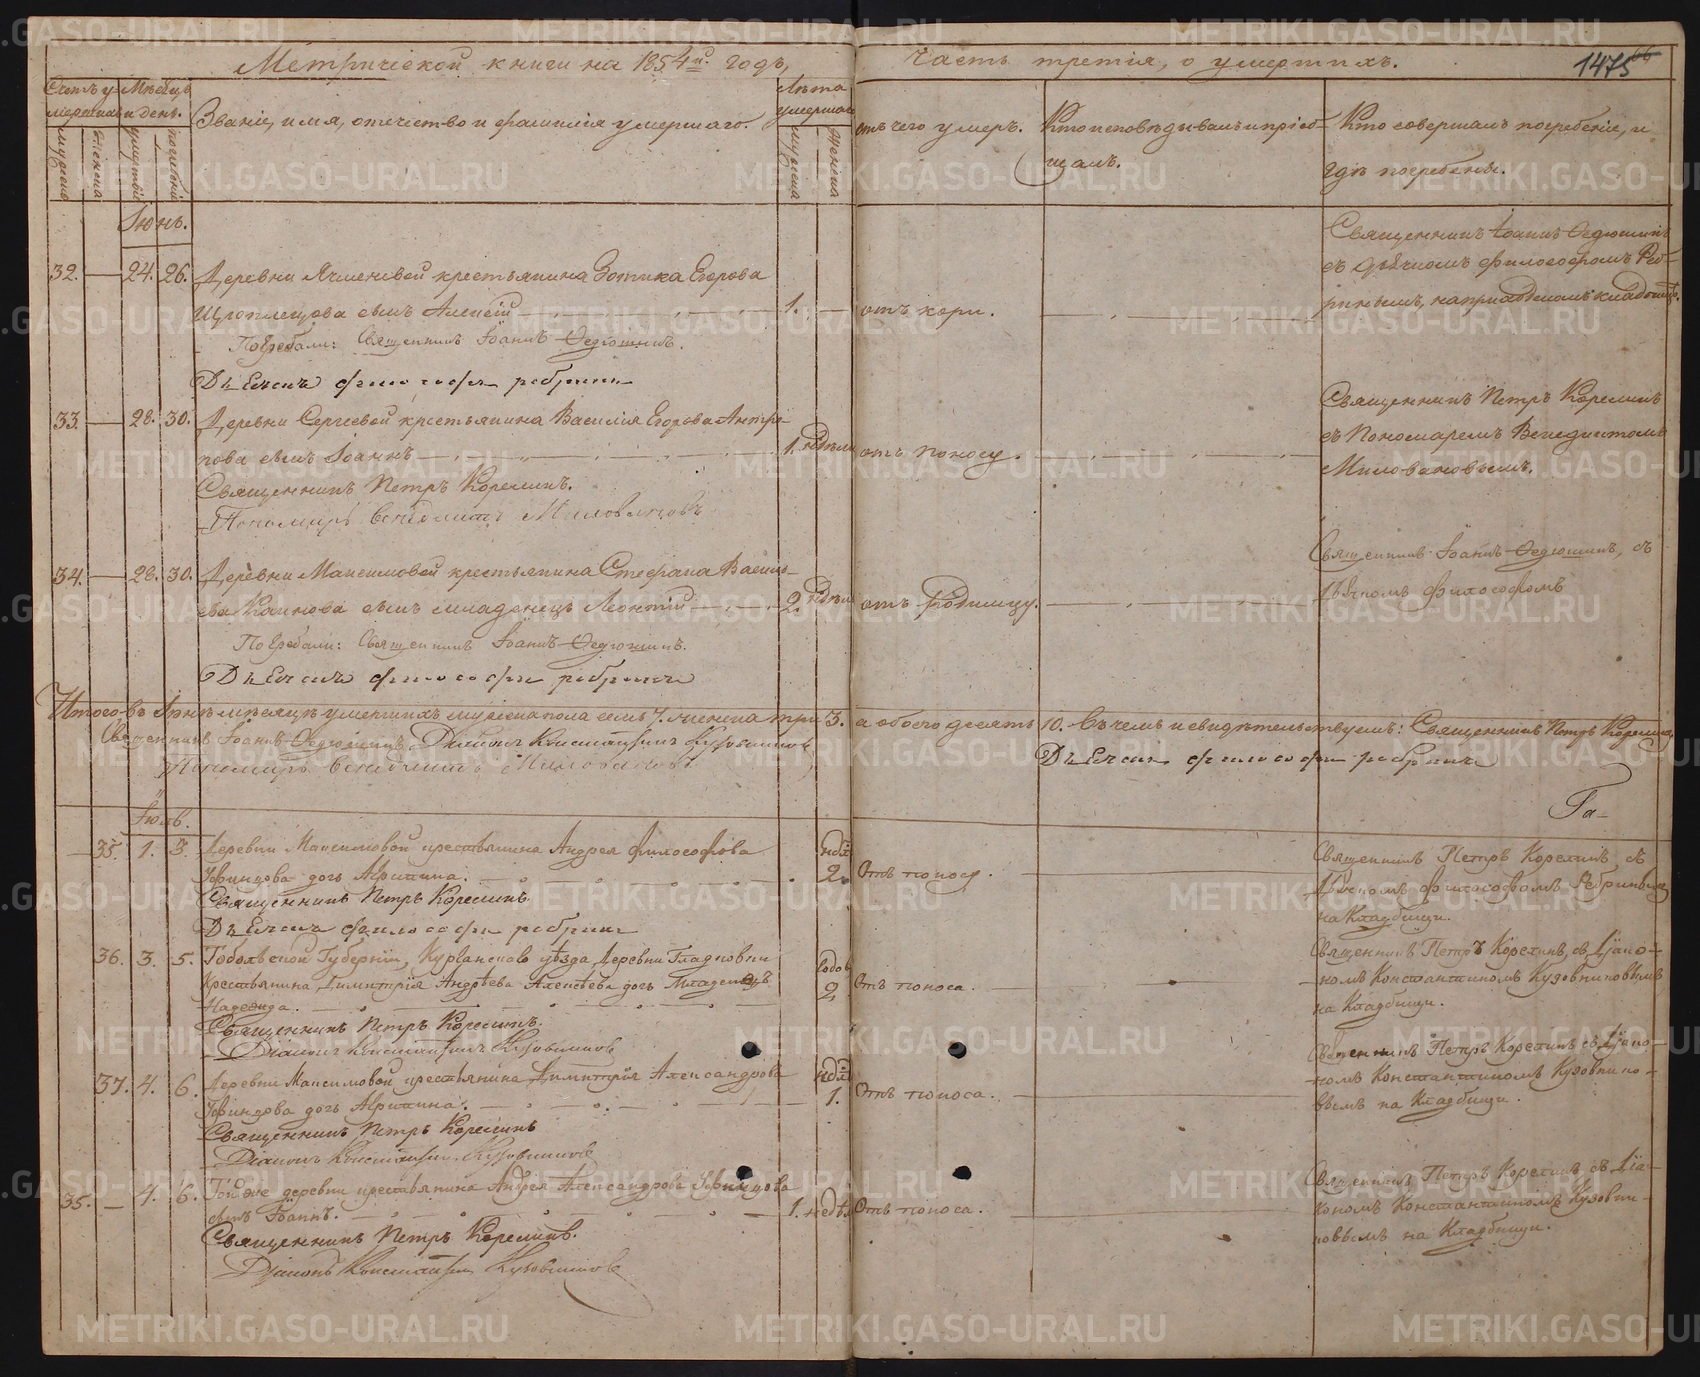 Метрической книги на 1854й годъ,
Часть третія, о умершихъ.
1475
Счетъ умершихъ
Мѣсяцъ и день.
Званіе, имя, отечество и фамилія умершаго.
Лѣта умершаго
отъ чего умеръ.
Кто исповѣдывалъ и пріобщалъ.
Кто совершалъ погребеніе, и
гдѣ погребены.
мужеска
женска
смерти
погребенія
мужеска
женска
Іюнь.
Священникъ Іоаннъ Ѳедюшинъ
съ дьячкомъ философомъ Реб-
ринымъ, на приходскомъ кладбищѣ.
32. — 24. 26. Деревни Ячменевой крестьянина Зотика Егорова
Щтоплецова сынъ Алексій — 1. — отъ кори.
Погребали: Священникъ Іоаннъ Ѳедюшинъ.
Дьячекъ философъ ребринъ
33. — 28. 30. Деревни Сергеевой крестьянина Василія Егорова Антро-
пова сынъ Іоаннъ — 1. недѣли отъ поносу.
Священникъ Петръ Корелинъ
съ Пономаремъ Венедиктомъ
Миловановымъ.
Священникъ Петръ Корелинъ.
Пономарь Венедиктъ Миловановъ
34. — 28. 30. Деревни Максимовой крестьянина Стефана Василь-
ева Каинова сынъ младенецъ Леонтій — 2. недѣли отъ Родимцу.
Священникъ Іоаннъ Ѳедюшинъ, съ
дьячкомъ философомъ
Погребали: Священникъ Іоаннъ Ѳедюшинъ.
Дьячекъ философъ ребринъ
Итого въ Іюнѣ мѣсяцѣ умершихъ мужеска пола семь 7. женска три 3. а обоего десять 10. Въ чемъ и свидѣтельствуемъ: Священникъ Петръ Корелинъ,
Священникъ Іоаннъ Ѳедюшинъ Діаконъ Константинъ Кузовниковъ
Дьячекъ философъ ребринъ
Пономарь Венедиктъ Миловановъ
Іюль.
35. 1. 3. Деревни Максимовой крестьянина Андрея философова
дочь Агрипина. — недѣ. 2. Отъ поноса.
Священникъ Петръ Корелинъ, съ
дьячкомъ философомъ Ребринымъ
на Кладбищи.
Священникъ Петръ Корелинъ.
Дьячекъ философъ ребринъ
36. 3. 5. Тобольской Губерніи, Курганскаго уѣзда, Деревни Гладковки
Крестьянина Димитрія Андрѣева Алексѣева дочь Младенецъ
Надежда. — годов. 2. Отъ поноса.
Священникъ Петръ Корелинъ, съ Діако-
номъ Константиномъ Кузовниковымъ
на Кладбищи.
Священникъ Петръ Корелинъ.
Діаконъ Константинъ Кузовниковъ
37. 4. 6. Деревни Максимовой крестьянина Димитрія Александрова
дочь Агрипина. — недѣ. 1. Отъ поноса.
Священникъ Петръ Корелинъ съ Діако-
номъ Константиномъ Кузовнико-
вымъ на Кладбищи.
Священникъ Петръ Корелинъ
Діаконъ Константинъ Кузовниковъ
35. — 4. 6. Той же деревни крестьянина Андрея Александрова
сынъ Іоаннъ. — 1. недѣл. Отъ поноса.
Священникъ Петръ Корелинъ, съ Діа-
кономъ Константиномъ Кузовни-
ковымъ на Кладбищи.
Священникъ Петръ Корелинъ.
Діаконъ Константинъ Кузовниковъ
METRIKI.GASO-URAL.RU